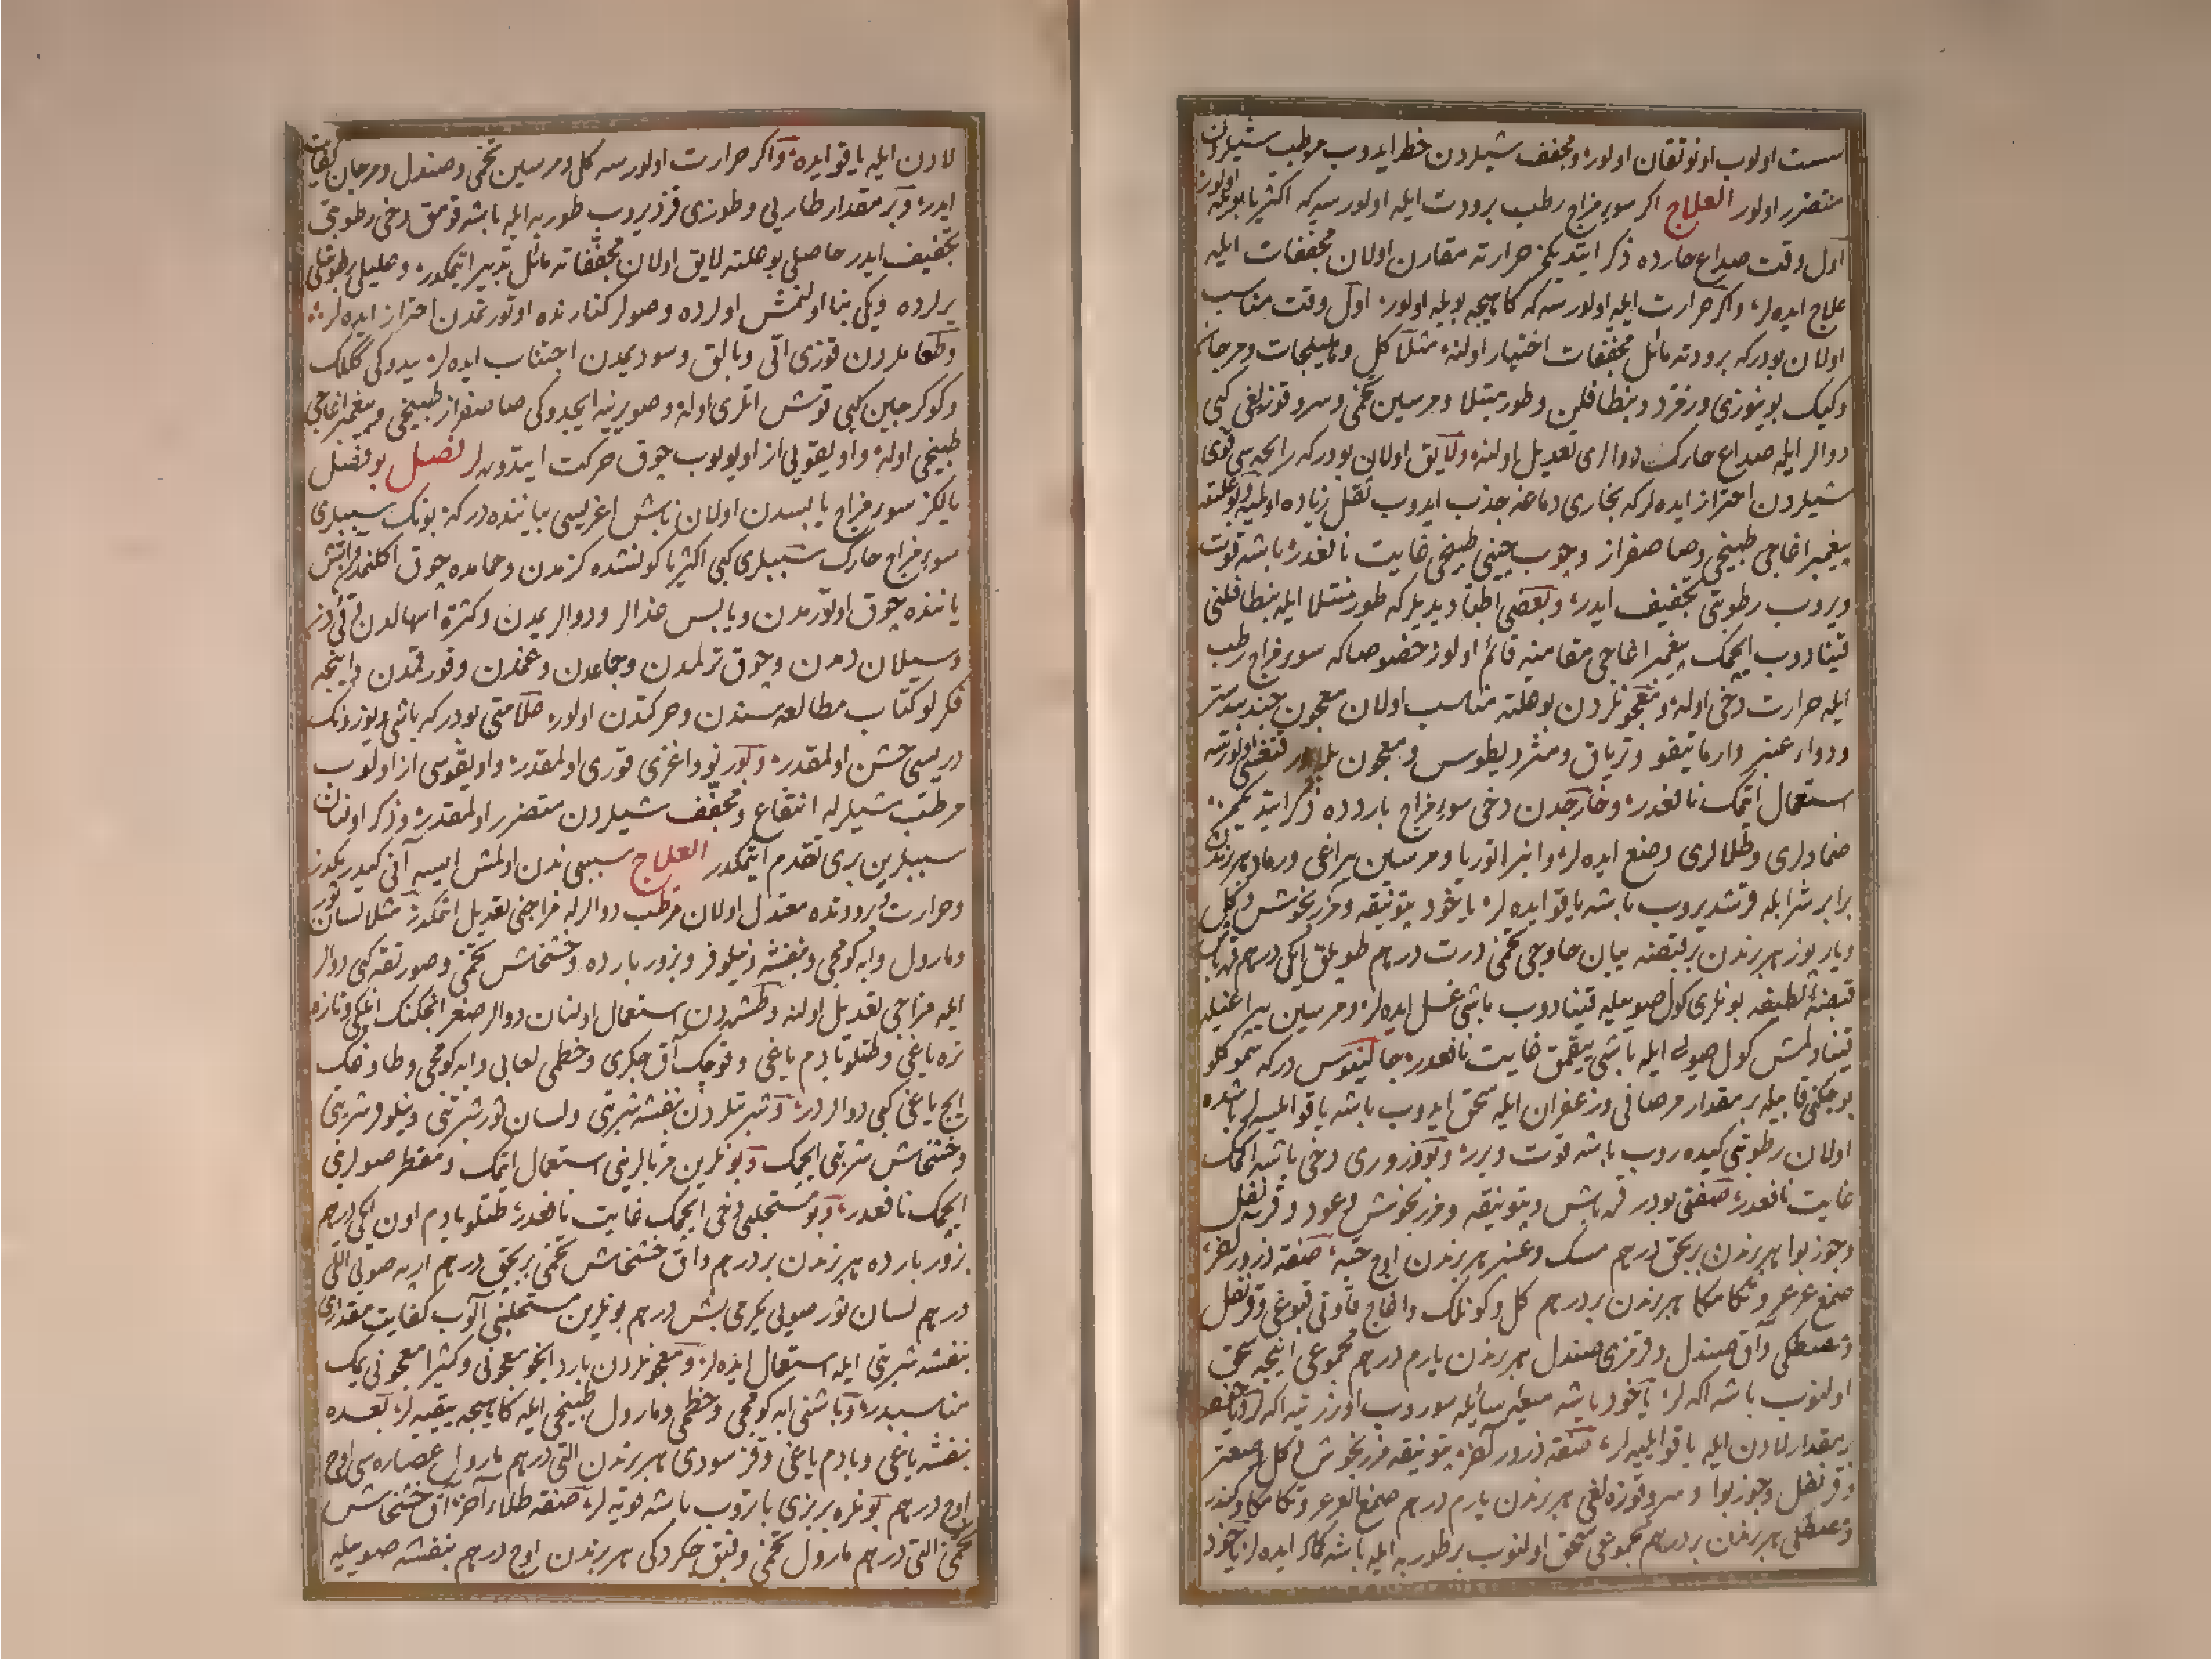 سست اولوب اونوتقان اولور و مجفف شیلردن خط ایدوب مرطب شیلردن
متضرر اولور العلاج اکر سوء مزاج رطب برودت ایله اولورسه که اکثریا بویله اولور
اول وقت صداع حارده ذکر ایتدیکمز حرارته مقارن اولان مجففات ایله
علاج ایده لر واکر حرارت ایله اولورسه که کاهیجه بویله اولور اول وقت مناسب
اولان بودرکه برودته مائل مجففات اختیار اولنه مثلا کل وهلیلجات ومرجان
وکیک بوینوزی وبنطافلن وطورمنتلا ومرسین تخمی وسرو قوزلغی کبی
دوالر ایله صداع حارک دوالری تعدیل اولنه ولایق اولان بودرکه رایحه سی قوی
شیلردن احتراز ایده لرکه بخاری دماغه جذب ایدوب ثقل زیاده اولمیه وبو علته
پیغمبر اغاجی طبیخی وصاصفراز وچوب چینی طبیخی غایت نافعدر باشه قوت
ویروب رطوبتی تجفیف ایدر وبعضی اطبا دیدیلرکه طورمنتلا ایله بنطافلنی
قینادوب ایچمک پیغمبر اغاجی مقامنه قائم اولور خصوصاکه سوء مزاج رطب
ایله حرارت دخی اوله ومعجونلردن بو علته مناسب اولان معجون جندبیدستر
ودواء عنبر وارماتیقو وتریاق ومثرودیطوس ومعجون بلادر
استعمال ایتمک نافعدر وخارجدن دخی سوء مزاج بارده ذکر ایتدیکمز
ضمادلری وطلالری وضع ایده لر
برابر شراب ایله قرشدیروب باشه یاقو ایده لر یاخود بتونیقه ومرزنجوش وکل
وباریوز هر برندن بر قبضه یبان حاوجی تخمی درت درهم طویلق ایکی درهم
قبضه لطیفه بونلری کول صویله قینادوب باشی غسل ایده لر ومرسین یپراغیله
قینادلمش کول صویی ایله باشی ییقمق غایت نافعدر جالینوس درکه سموکلو
بوجکنی قابیله بر مقدار مرصافی وزعفران ایله سحق ایدوب باشه یاقو ایلسه لر باشده
اولان رطوبتی کیده روب باشه قوت ویرر وبو ذروری دخی باشه اکمک
غایت نافعدر صفتی بودر بتونیقه ومرزنجوش وعود وقرنفل
وجوز بوا هر برندن بر بچق درهم مسک وعنبر هر برندن اوچ حبه صنعة ذرور آخر
صمغ عرعر وتکامکا هر برندن بر درهم کل وکونلک واغاج قاونی قبوغی وقرنفل
ومصطکی وآق صندل وقرمزی صندل هر برندن یارم درهم مجموعی اینجه سحق
اولنوب باشه اکه لر یاخود باشه سوروب اوزرینه اکه لر
بر مقدار لادن ایله یاقو ایلیه لر صنعة ذرور آخر بتونیقه مرزنجوش کل صعتر
وقرنفل وجوز بوا وسرو قوزه لغی هر برندن یارم درهم صمغ العرعر وتکامکا وکندر
ومصطکی هر برندن بر درهم مجموعی سحق اولنوب بر طوربه ایله باشه کماد ایده لر یاخود
لادن ایله یاقو ایده واکر حرارت اولورسه کل ومرسین تخمی وصندل ومرجان کفایت
ایدر وبر مقدار طاریی وطوزی قزدیروب طوربه ایله باشه قومق دخی رطوبتی
تجفیف ایدر حاصلی بو علته لایق اولان مجففاته مائل تدبیر ایتمکدر وعلیلی رطوبتلی
یرلرده ویکی بنا اولنمش اولرده وصولر کنارنده اوتورتمدن احتراز ایده لر
وطعاملردن قوزی اتی وبالق وسود یمدن اجتناب ایده لر یدوکی کللک
وکوکرجین کبی قوش اتلری اوله وصو یرینه ایچدوکی صاصفراز طبیخی وپیغمبر اغاجی
طبیخی اوله واویقویی از اویویوب چوق حرکت ایتدوره لر فصل بو فصل
یالکز سوء مزاج یابسدن اولان باش اغریسی بیاننده درکه بونک سببلری
سوء مزاج حارک سببلری کبی اکثریا کونشده کزمدن وحمامده چوق اکلنمدن واتش
یاننده چوق اوتورمدن ویابس غذالر ودوالر یمدن وکثرة اسهالدن وقئ دن
وسیلان دمدن وچوق ترلمدن وجماعدن وغمدن وقورقمدن واینجه
فکرلو کتاب مطالعه سندن وحرکتدن اولور علامتی بودرکه باشی ویوزینک
دریسی خشن اولمقدر وبورنی واغزی قوری اولمقدر واویقوسی از اولوب
مرطب شیلرله انتفاع ومجفف شیلردن متضرر اولمقدر وذکر اولنان
سببلرین بری تقدم ایتمکدر العلاج سببی ندن اولمش ایسه آنی کیدرمکدر
وحرارت وبرودتده معتدل اولان مرطب دوالرله مزاجنی تعدیل اتمکدر مثلا لسان ثور
ومارول وابه کومجی وبنفشه ونیلوفر وبزور بارده وخشخاش تخمی وصورنقه کبی دوالر
ایله مزاجی تعدیل اولنه وطشردن استعمال اولنان دوالر صغر ایچکنک ایلکی وتازه
تره یاغی وطتلو بادم یاغی وقوجک آق جکری وخطمی لعابی وابه کومجی وطاوغک
ایچ یاغی کبی دوالردر وشربتلردن بنفشه شربتی ولسان ثور شربتی ونیلوفر شربتی
وخشخاش شربتی ایچمک وبونلرین مربالرینی استعمال اتمک ومقطر صولرینی
ایچمک نافعدر وبو مستحلبی دخی ایچمک غایت نافعدر طتلو بادم اون ایکی درهم
بزور بارده هر برندن بر درهم وآق خشخاش تخمی بر بچق درهم ارپه صویی اللی
درهم لسان ثور صویی یکرمی بش درهم بونلرین مستحلبنی آلوب کفایت مقداری
بنفشه شربتی ایله استعمال ایده لر ومعجونلردن بارد انجو معجونی وکثیرا معجونی یمک
مناسبدر وباشنی ابه کومجی وخطمی ومارول طبیخی ایله کاهیجه ییقیه لر بعده
بنفشه یاغی وبادم یاغی وقز سودی هر برندن التی درهم مارول عصاره سی اوچ
اوچ درهم بونلره بر بزی باتروب باشه قویه لر صنعة طلاء آخر آق خشخاش
تخمی التی درهم مارول تخمی وقبق جکردکی هر برندن اوچ درهم بنفشه صویله